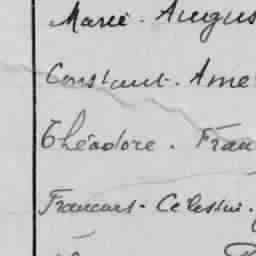 Marie. Augus
Constant. Ame
Théodore. Fran
Francois. Celestin.